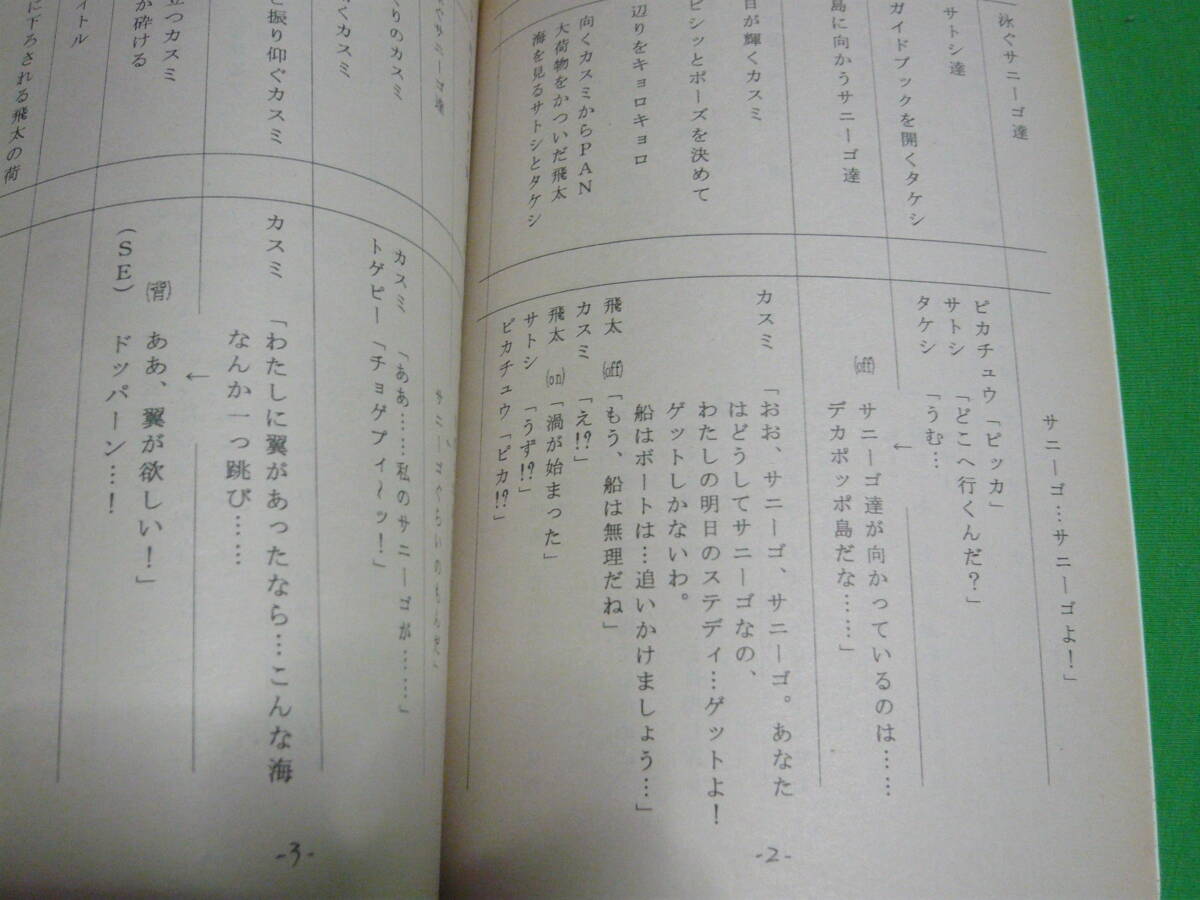 泳ぐサニーゴ達
サトシ達
ガイドブックを開くタケシ
島に向かうサニーゴ達
目が輝くカスミ
ビシッとポーズを決めて
辺りをキョロキョロ
向くカスミからPAN
大荷物をかついだ飛太
海を見るサトシとタケシ
サニーゴ…サニーゴよ！」
ピカチュウ「ピッカ」
サトシ「どこへ行くんだ？」
タケシ「うむ…
(off) サニーゴ達が向かっているのは……
デカポッポ島だな……」
カスミ「おお、サニーゴ、サニーゴ。あなた
はどうしてサニーゴなの、
わたしの明日のステディ…ゲットよ！
ゲットしかないわ。
船はボートは…追いかけましょう…」
飛太 (off)「もう、船は無理だね」
カスミ「え!?」
飛太 (on)「渦が始まった」
サトシ「うず!?」
ピカチュウ「ピカ!?」
-2-
ぐサニーゴ達
りのカスミ
くカスミ
と振り仰ぐカスミ
立つカスミ
が砕ける
イトル
に下ろされる飛太の荷
カスミ「ああ……私のサニーゴが……」
トゲピー「チョゲプィ〜ッ！」
カスミ「わたしに翼があったなら…こんな海
なんか一っ跳び……
(背) ああ、翼が欲しい！」
(SE) ドッパーン…！
-3-